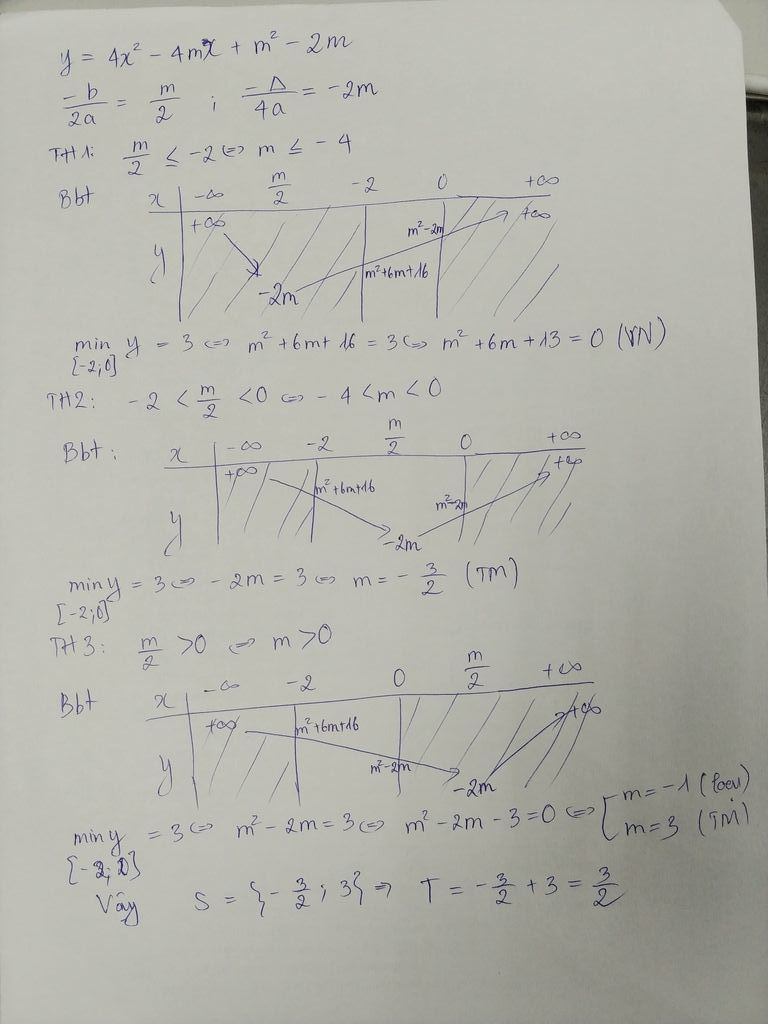 y = 4x² - 4mx + m² - 2m
-b/2a = m/2 ; -Δ/4a = -2m
TH1: m/2 ≤ -2 ⇔ m ≤ -4
Bbt x -∞ m/2 -2 0 +∞
+∞ m²-2m +∞
y m²+6m+16
-2m
min y = 3 ⇔ m² + 6m + 16 = 3 ⇔ m² + 6m + 13 = 0 (VN)
[-2;0]
TH2: -2 < m/2 < 0 ⇔ -4 < m < 0
Bbt: x -∞ -2 m/2 0 +∞
+∞ m²+6m+16 m²-2m +∞
y -2m
min y = 3 ⇔ -2m = 3 ⇔ m = -3/2 (TM)
[-2;0]
TH3: m/2 > 0 ⇔ m > 0
Bbt x -∞ -2 0 m/2 +∞
+∞ m²+6m+16 +∞
y m²-2m -2m
min y = 3 ⇔ m² - 2m = 3 ⇔ m² - 2m - 3 = 0 ⇔ [ m = -1 (loại)
m = 3 (TM)
[-2;0]
Vậy S = {-3/2; 3} ⇒ T = -3/2 + 3 = 3/2